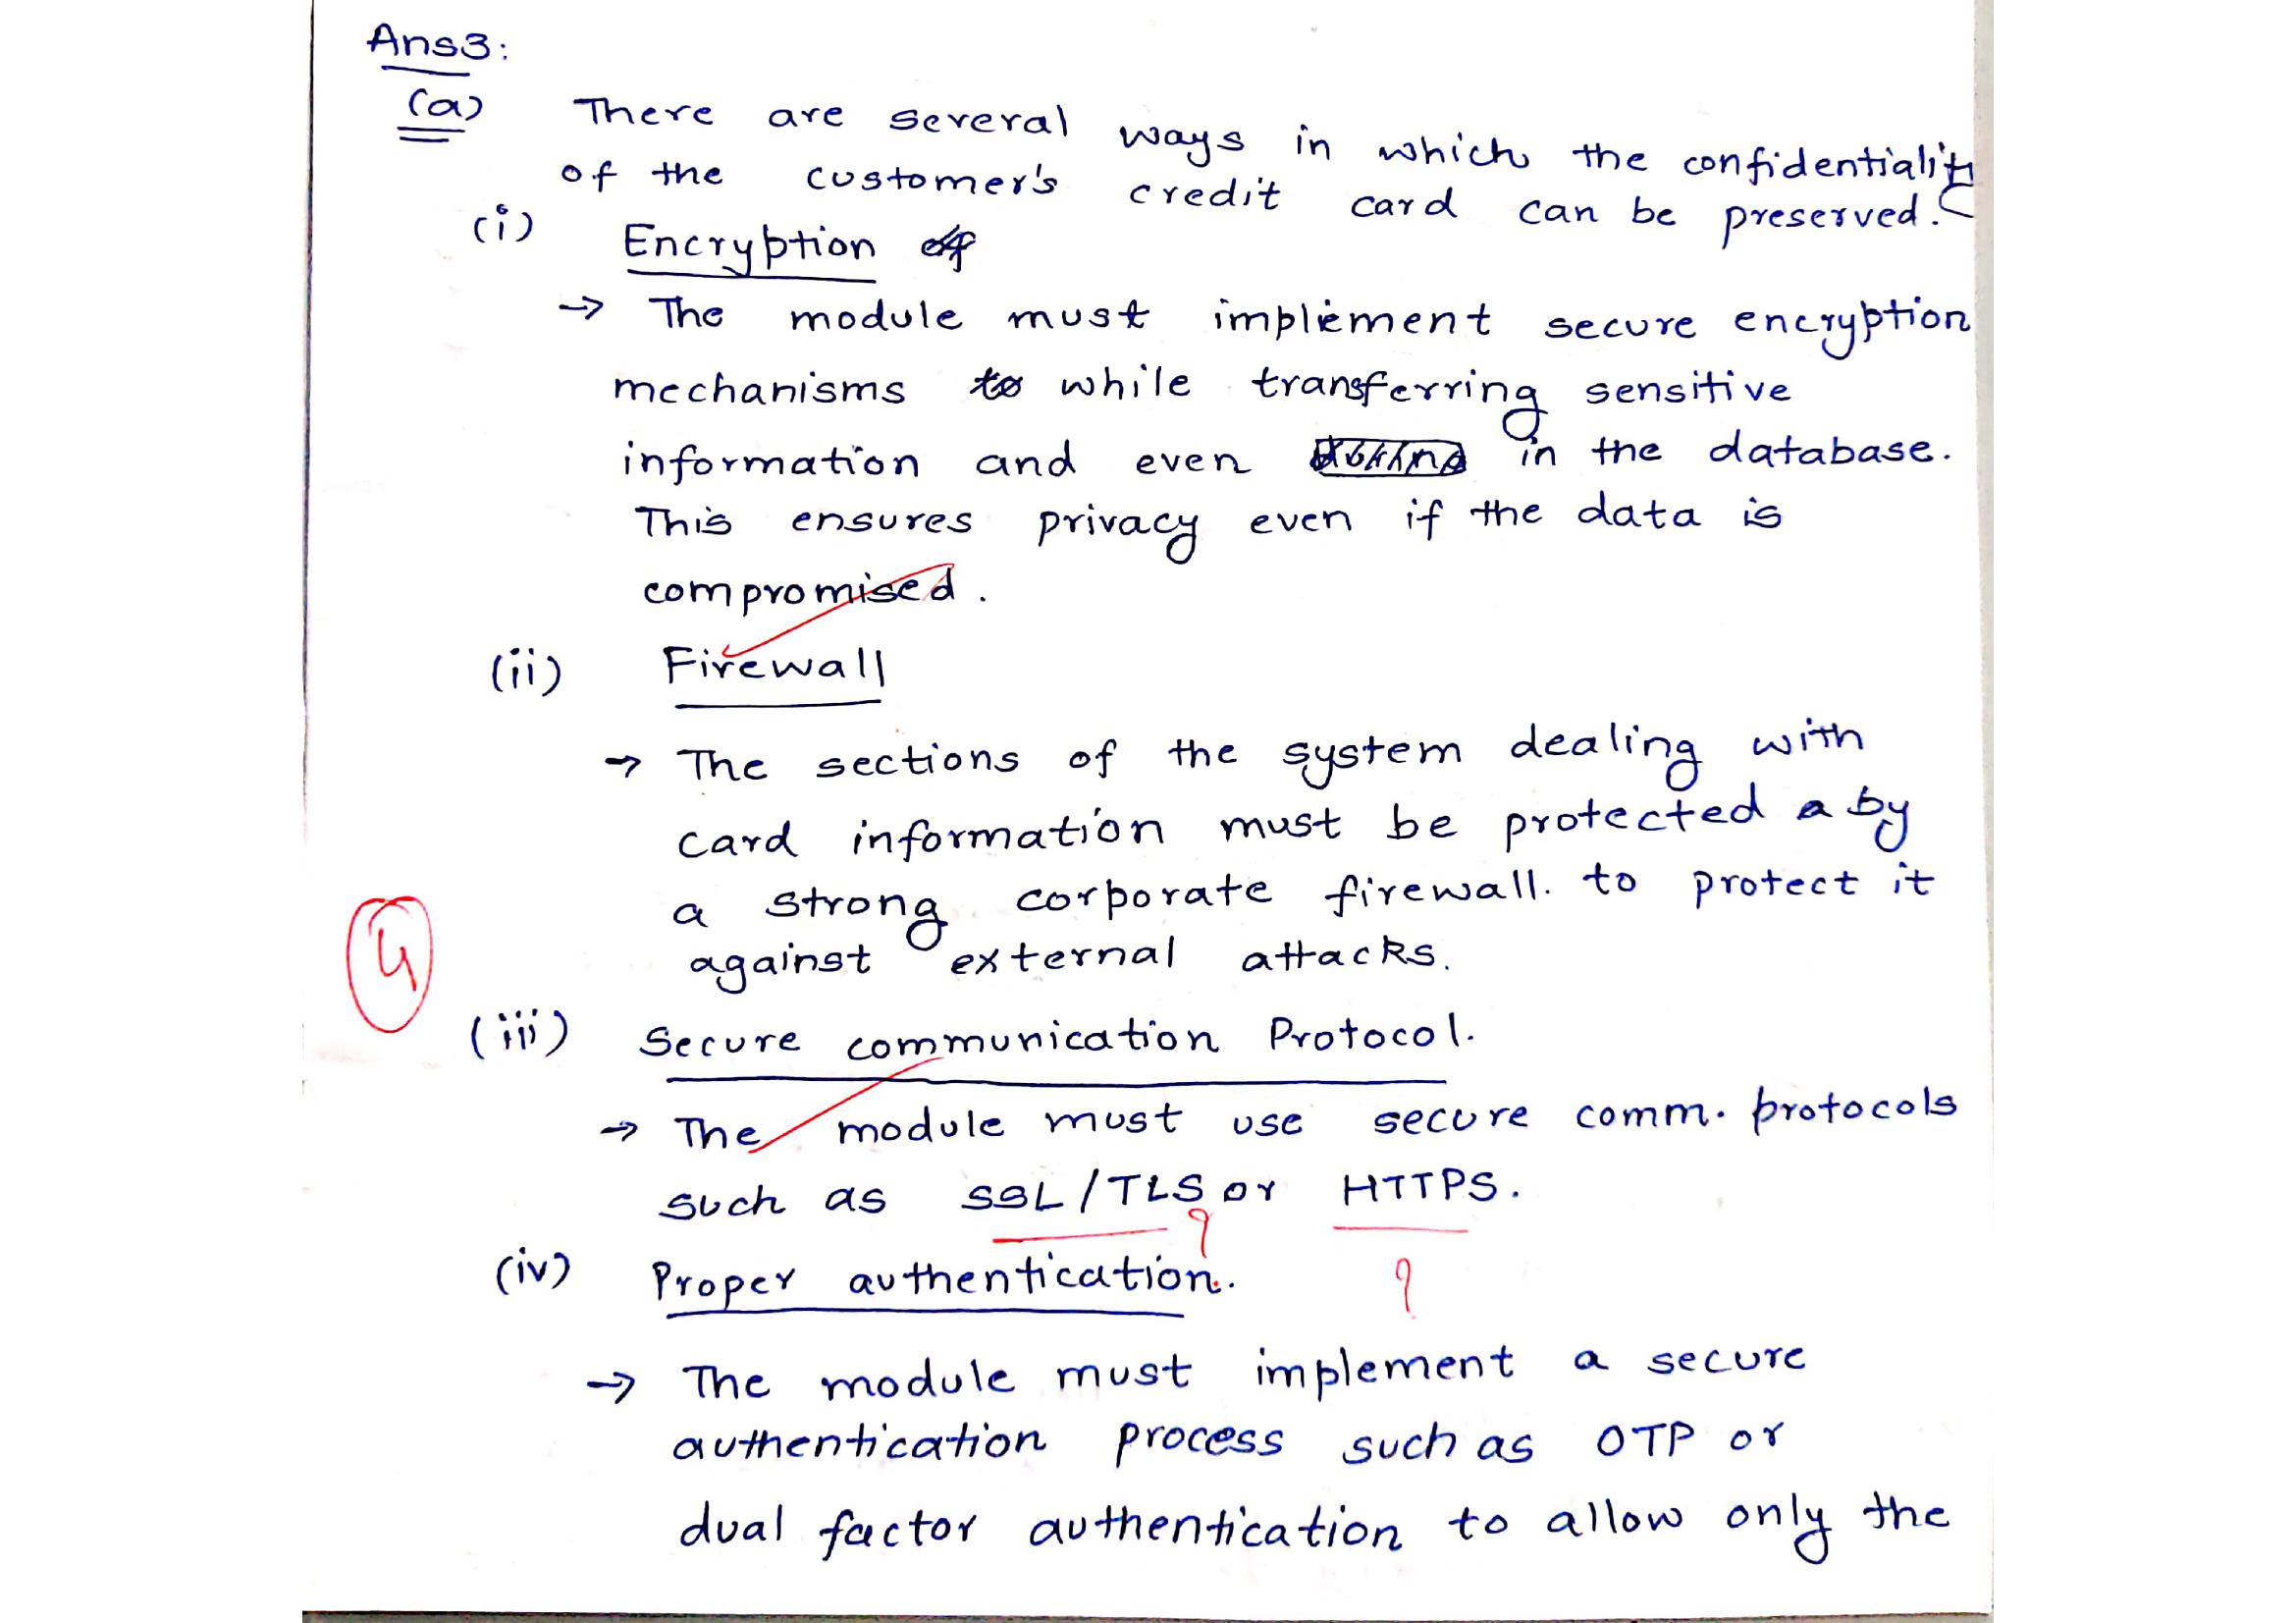 Ans3:
(a) There are several ways in which the confidentiality
of the customer's credit card can be preserved.
(i) Encryption
→ The module must implement secure encryption
mechanisms while transferring sensitive
information and even in the database.
This ensures privacy even if the data is
compromised.
(ii) Firewall
→ The sections of the system dealing with
card information must be protected a by
a strong corporate firewall. to protect it
against external attacks.
4
(iii) Secure communication Protocol.
→ The module must use secure comm. protocols
such as SSL/TLS or HTTPS.
?
(iv) Proper authentication.
?
→ The module must implement a secure
authentication process such as OTP or
dual factor authentication to allow only the